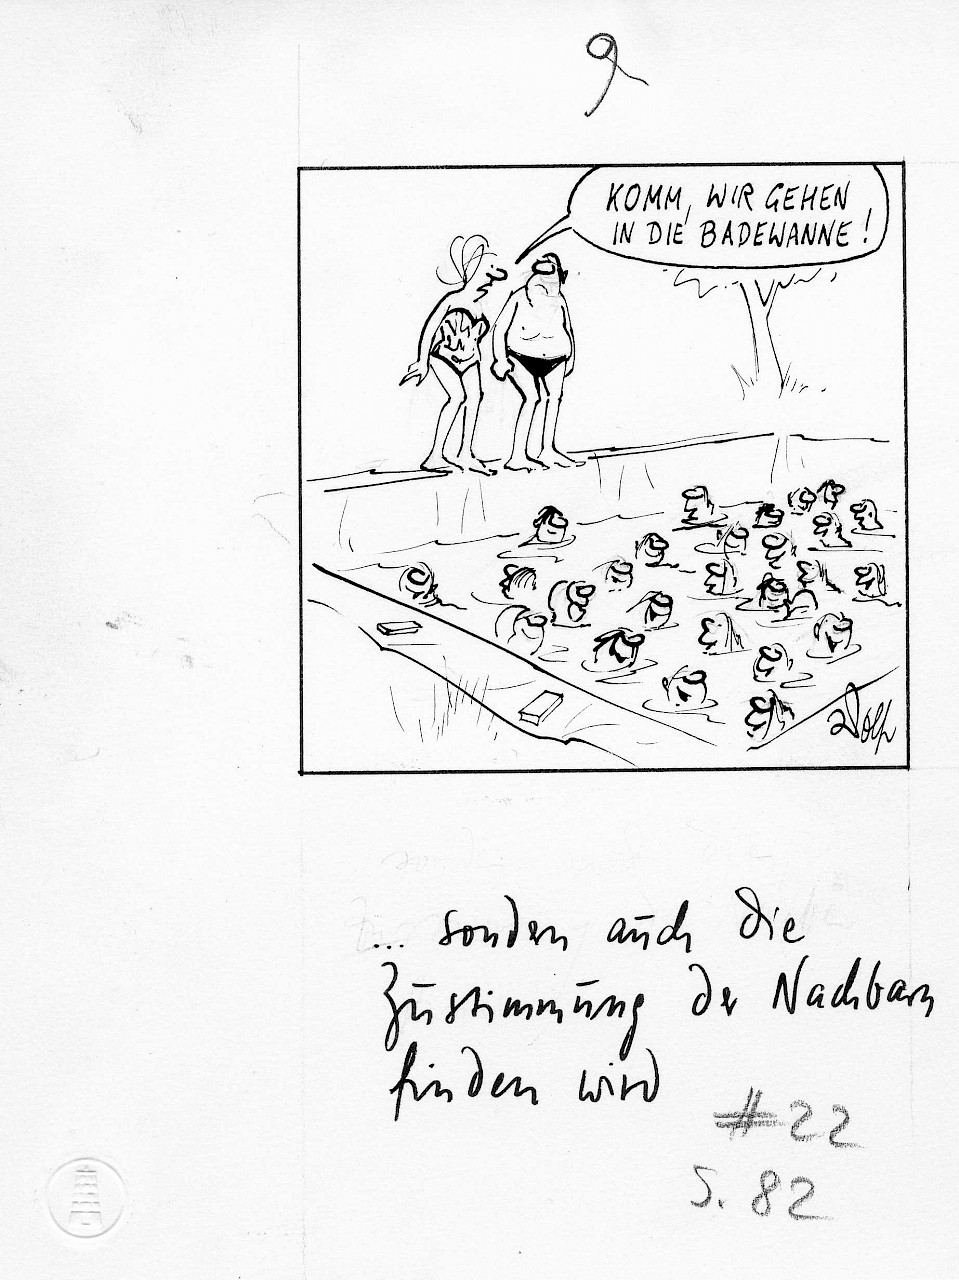 KOMM, WIR GEHEN
IN DIE BADEWANNE!
Wolf
... sondern auch die
Zustimmung der Nachbarn
finden wird
#22
S. 82